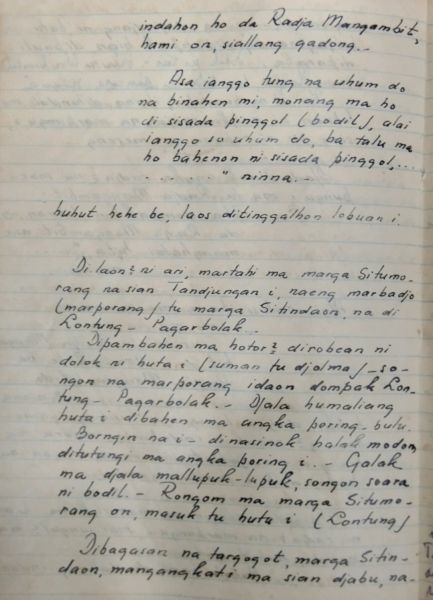 indahon ho da Radja Mangambit,
hami on, siallang gadong.-
Asa ianggo tung na uhum do
na binahen mi, monang ma ho
di sisada pinggol (bodil), alai
ianggo so uhum do, ba talu ma
ho bahenon ni sisada pinggol,....
. . . . . . " ninna.-
huhut hehe be, laos ditinggalhon lobuan i.
Di laon² ni ari, martahi ma marga Situmo-
rang na sian Tandjungan i, naeng marbadjo
(marporang) tu marga Sitindaon, na di
Lontung - Pagarbolak.-
Dipambahen ma hotor² dirobean ni
dolok ni huta i (suman tu djolma) - so-
ngon na marporang idaon dompak Lon-
tung - Pagarbolak.- Djala humaliang
huta i dibahen ma angka poring-bulu.
Borngin na i - dinasinok halak modom,
ditutungi ma angka poring i.- Galak
ma djala mallupuk-lupuk, songon soara
ni bodil.- Rongom ma marga Situmo-
rang on, masuk tu huta i (Lontung)
Dibagasan na targogot, marga Sitin-
daon, mangangkati ma sian djabu, na-